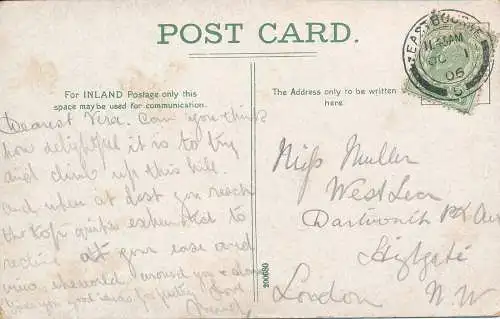 POST CARD.
EASTBOURNE
11.45AM
OC 1
06
For INLAND Postage only this
space may be used for communication.
The Address only to be written
here.
Dearest Vera. Can you think
how delightful it is to try
and climb up this hill.
and when at last you reach
the top quite exhausted to
recline at your ease and
view the world around you &
good
love
Miss Muller
West Lea
Dartmouth Pk Av
Highgate
London N.W
200680